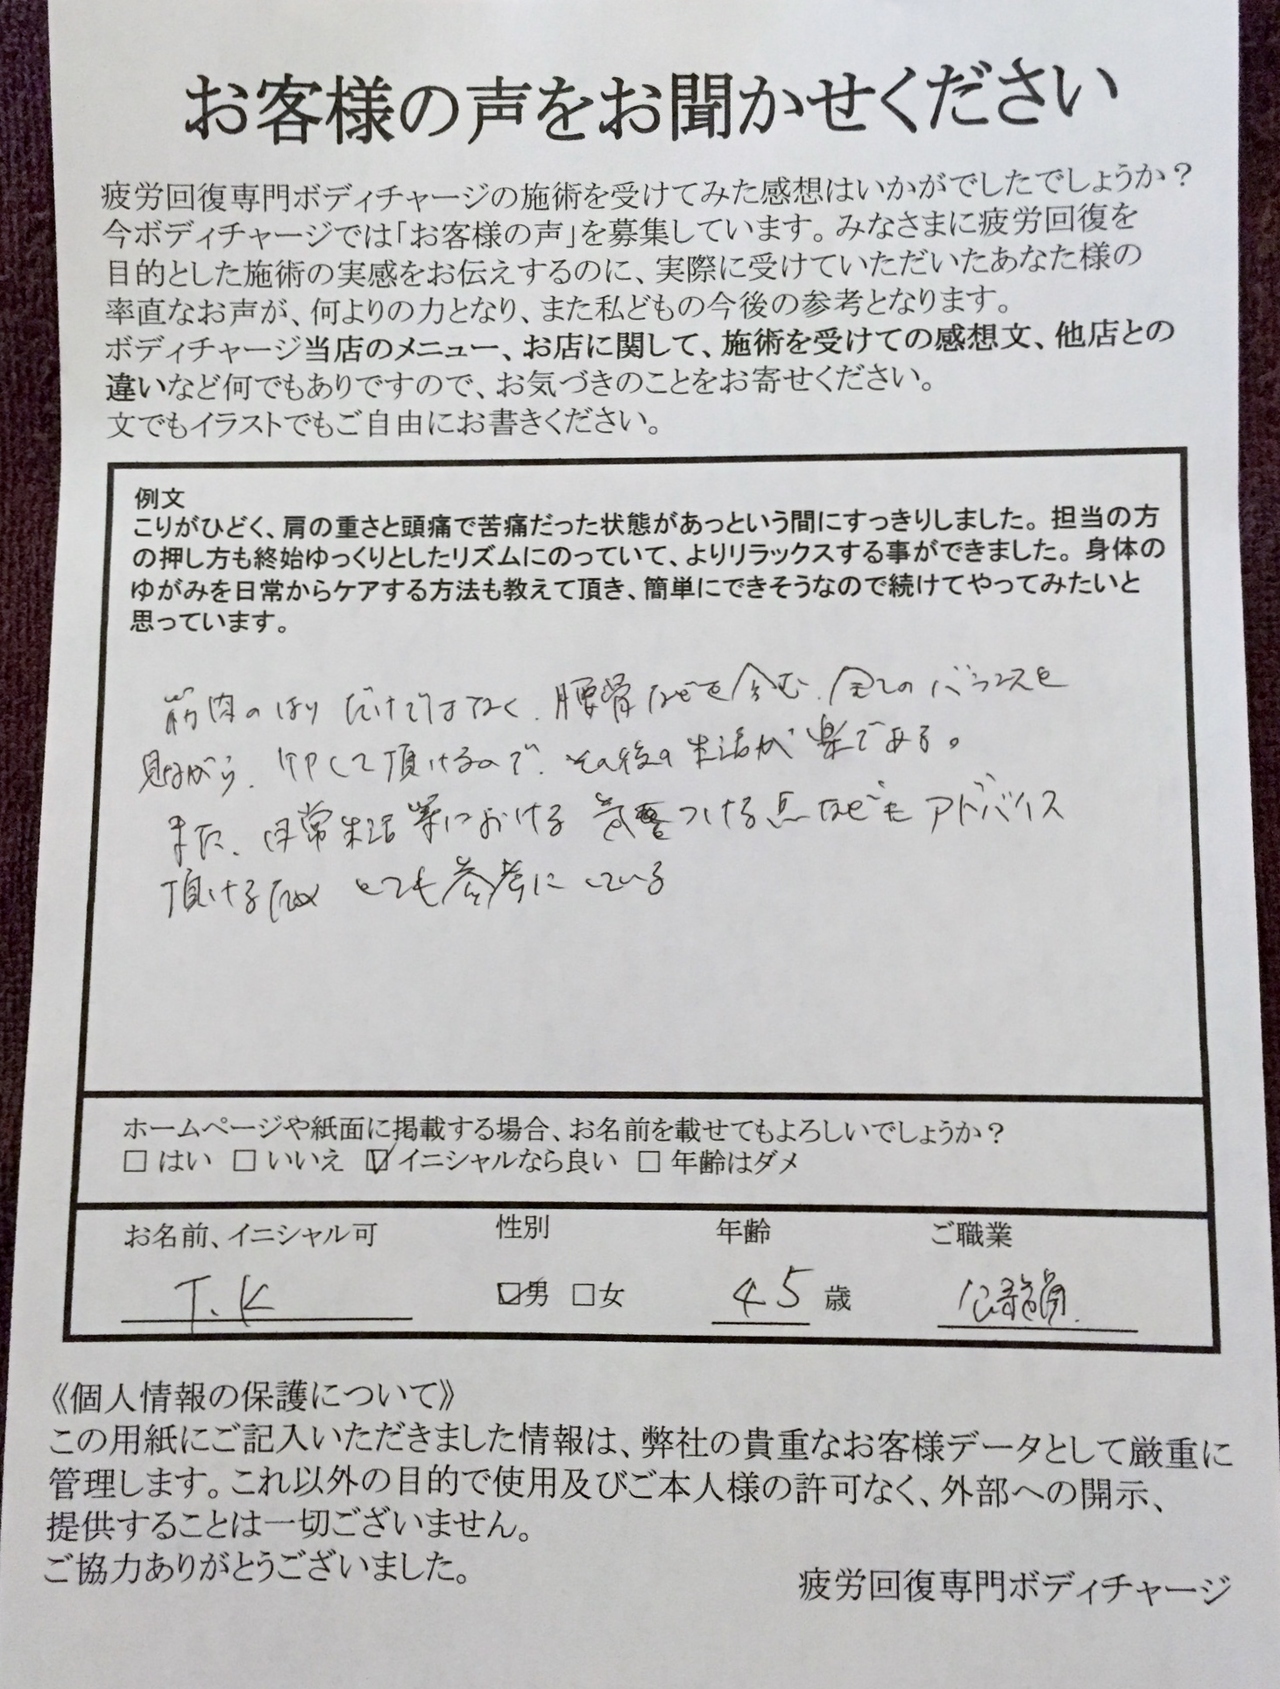 お客様の声をお聞かせください
疲労回復専門ボディチャージの施術を受けてみた感想はいかがでしたでしょうか？
今ボディチャージでは「お客様の声」を募集しています。みなさまに疲労回復を
目的とした施術の実感をお伝えするのに、実際に受けていただいたあなた様の
率直なお声が、何よりの力となり、また私どもの今後の参考となります。
ボディチャージ当店のメニュー、お店に関して、施術を受けての感想文、他店との
違いなど何でもありですので、お気づきのことをお寄せください。
文でもイラストでもご自由にお書きください。
例文
こりがひどく、肩の重さと頭痛で苦痛だった状態があっという間にすっきりしました。担当の方
の押し方も終始ゆっくりとしたリズムにのっていて、よりリラックスする事ができました。身体の
ゆがみを日常からケアする方法も教えて頂き、簡単にできそうなので続けてやってみたいと
思っています。
筋肉のはりだけではなく、腰骨なども含む、全てのバランスを
見ながら、押して頂けるので、その後の生活が楽である。
また、日常生活等における気をつける点などもアドバイス
頂けるため とても参考にしている
ホームページや紙面に掲載する場合、お名前を載せてもよろしいでしょうか？
□ はい □ いいえ ☑ イニシャルなら良い □ 年齢はダメ
お名前、イニシャル可 性別 年齢 ご職業
T.K ☑男 □女 45 歳
《個人情報の保護について》
この用紙にご記入いただきました情報は、弊社の貴重なお客様データとして厳重に
管理します。これ以外の目的で使用及びご本人様の許可なく、外部への開示、
提供することは一切ございません。
ご協力ありがとうございました。
疲労回復専門ボディチャージ